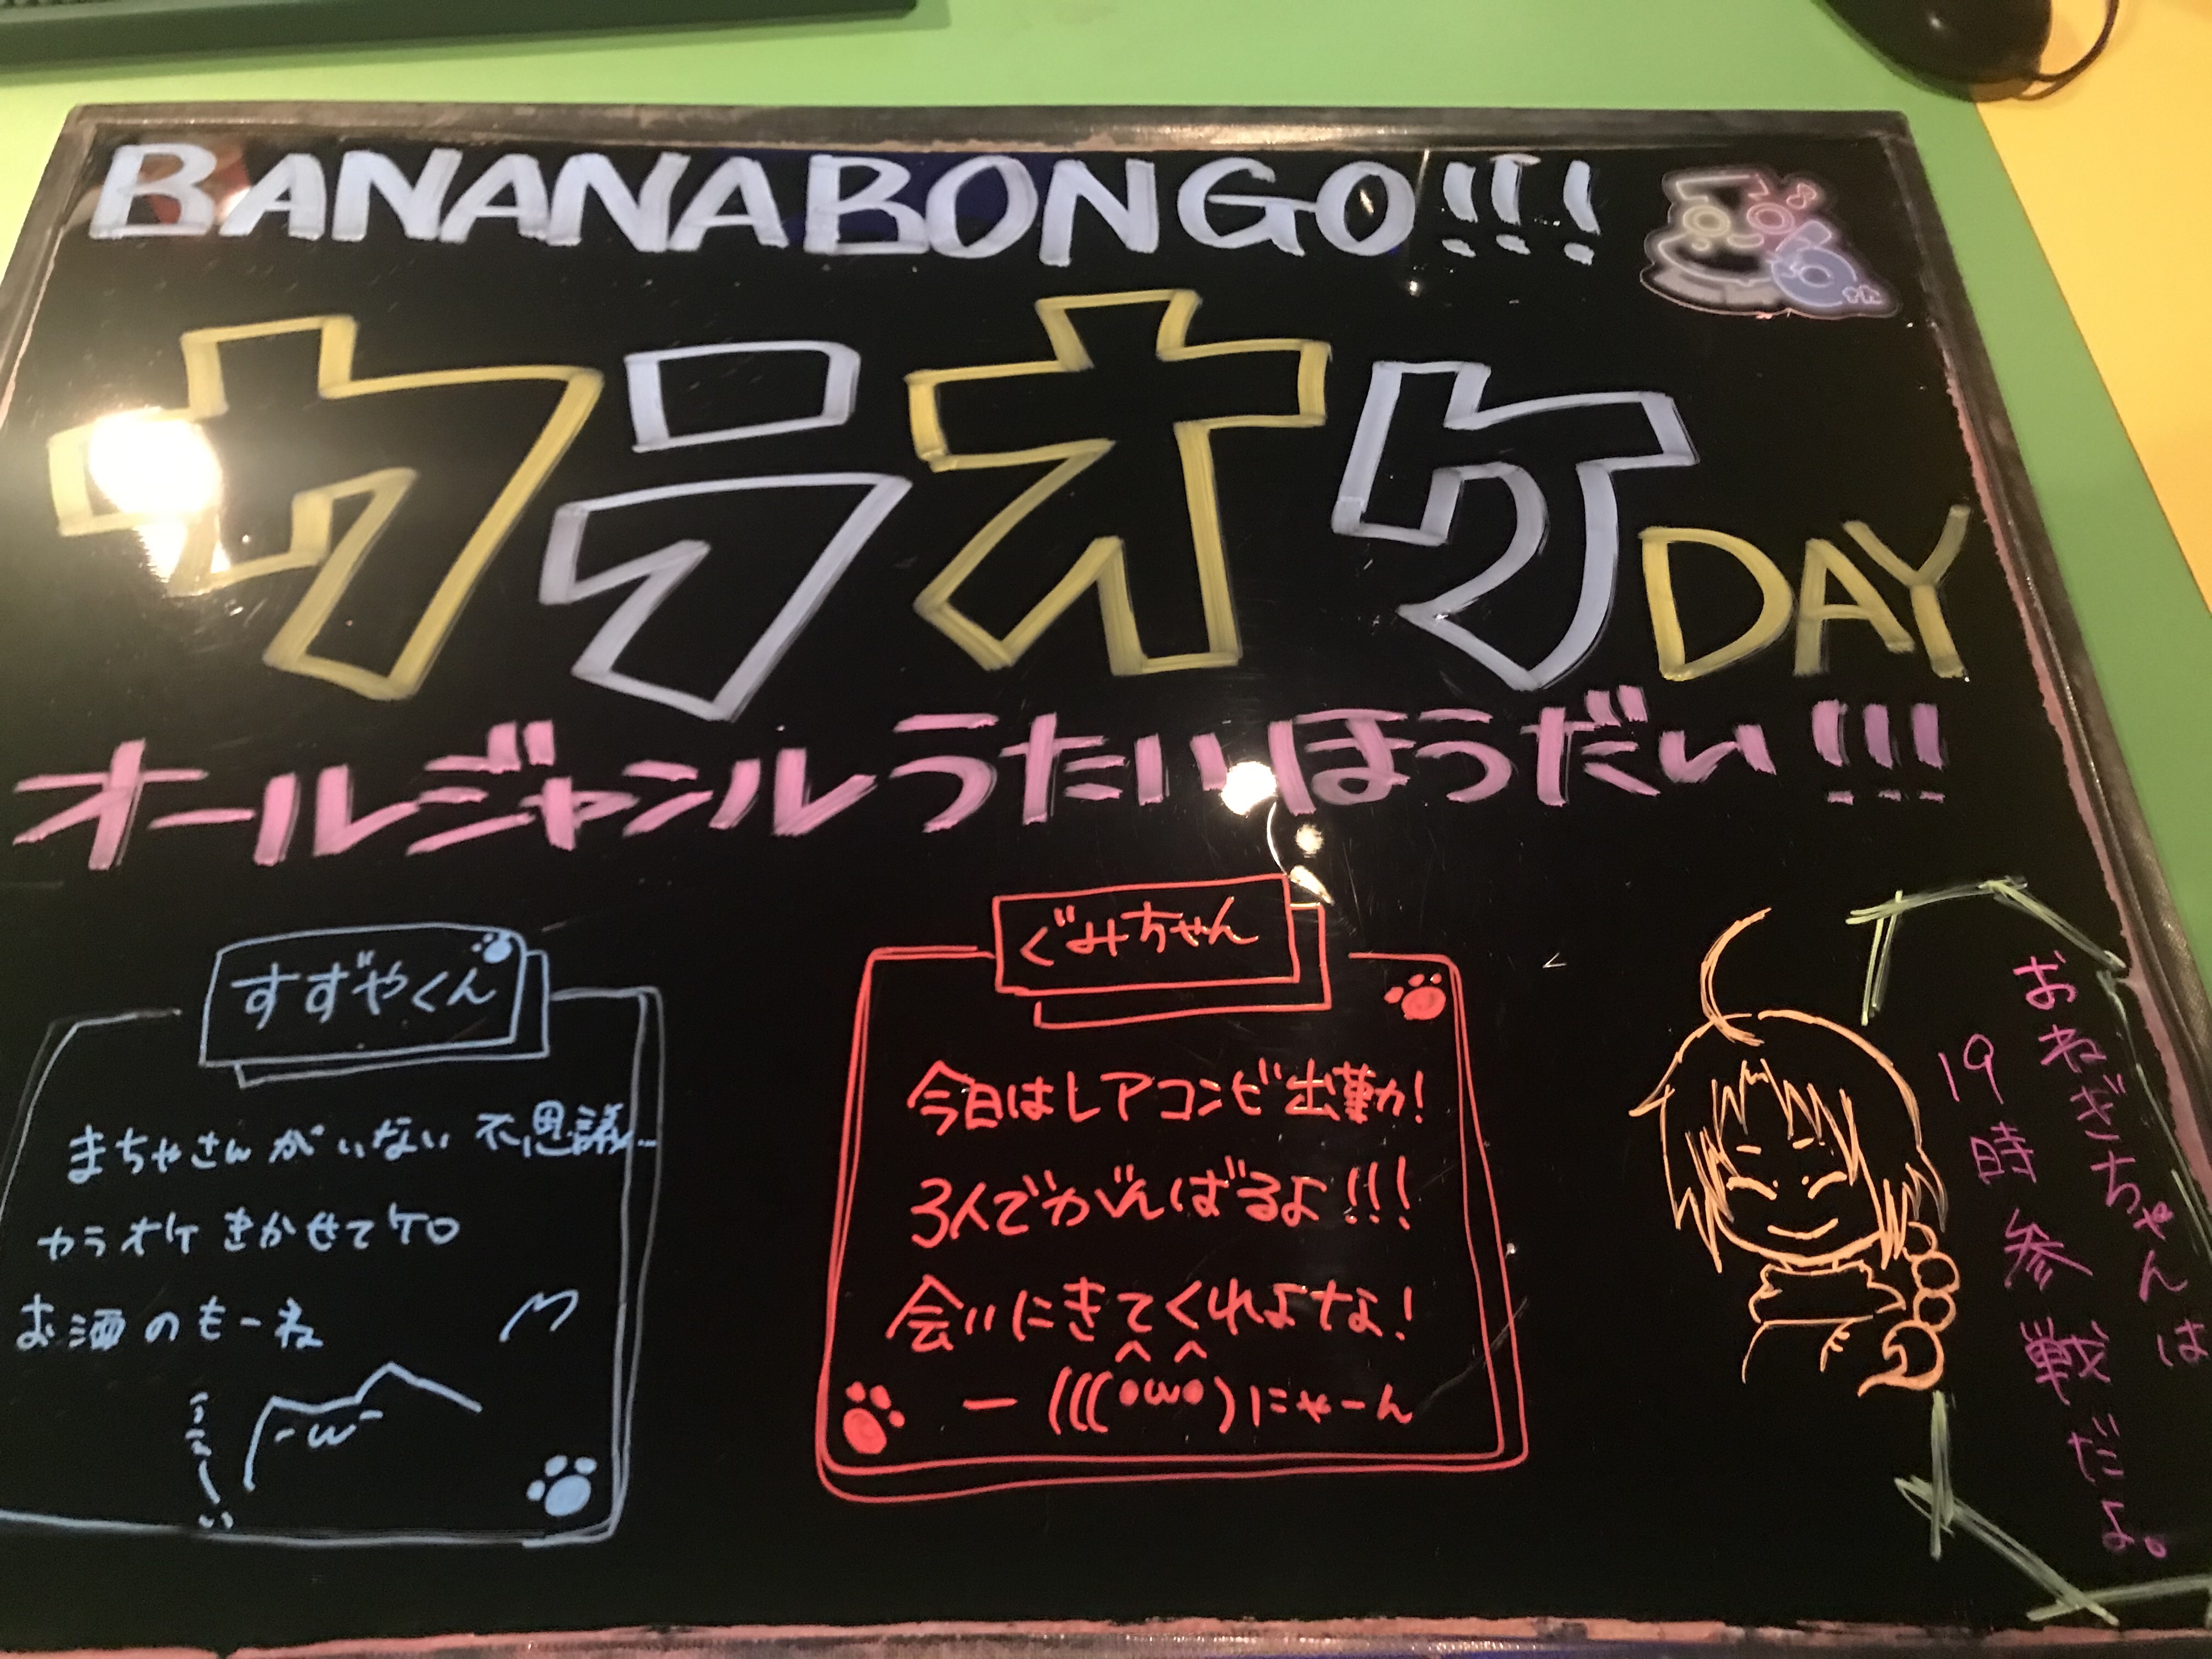 BANANABONGO!!!
カラオケDAY
オールジャンルうたいほうだい!!!
すずやくん
まちゃさんがいない不思議…
カラオケきかせてケロ
お酒のもーね
ぐみちゃん
今日はレアコンビ出勤!
3人でがんばるよ!!!
会いにきてくれよな!
ー(((•ω•)にゃーん
おねぎちゃんは
19時参戦だよ。